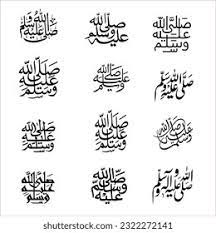 صلى الله عليه وسلم
صلى الله عليه وسلم
صلى الله عليه وسلم
صلى الله عليه وسلم
صلى الله عليه وسلم
صلى الله عليه وسلم
صلى الله عليه وسلم
صلى الله عليه وسلم
صلى الله عليه وسلم
صلى الله عليه وآله وسلم
صلى الله عليه وسلم
صلى الله عليه وسلم
shutterstock.com · 2322272141